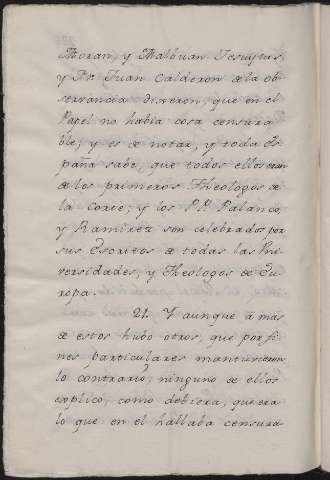 Moran, y Malbuan Jesuytas,
y Pe. Juan Calderon de la Ob-
servancia dixeron, que en el
Papel no habia cosa censura
ble; y es de notar, y toda Es-
paña sabe, que todos ellos eran
de los primeros Theologos de
la Corte; y los PP. Palanco,
y Ramirez son celebrados por
sus Escritos de todas las Uni-
versidades, y Theologos de Eu-
ropa.
21. Y aunque á mas
de estos hubo otros, que por fi-
nes particulares mantuvieron
lo contrario; ninguno de ellos
explicó, como debiera, que era
lo que en el hallaba censura-